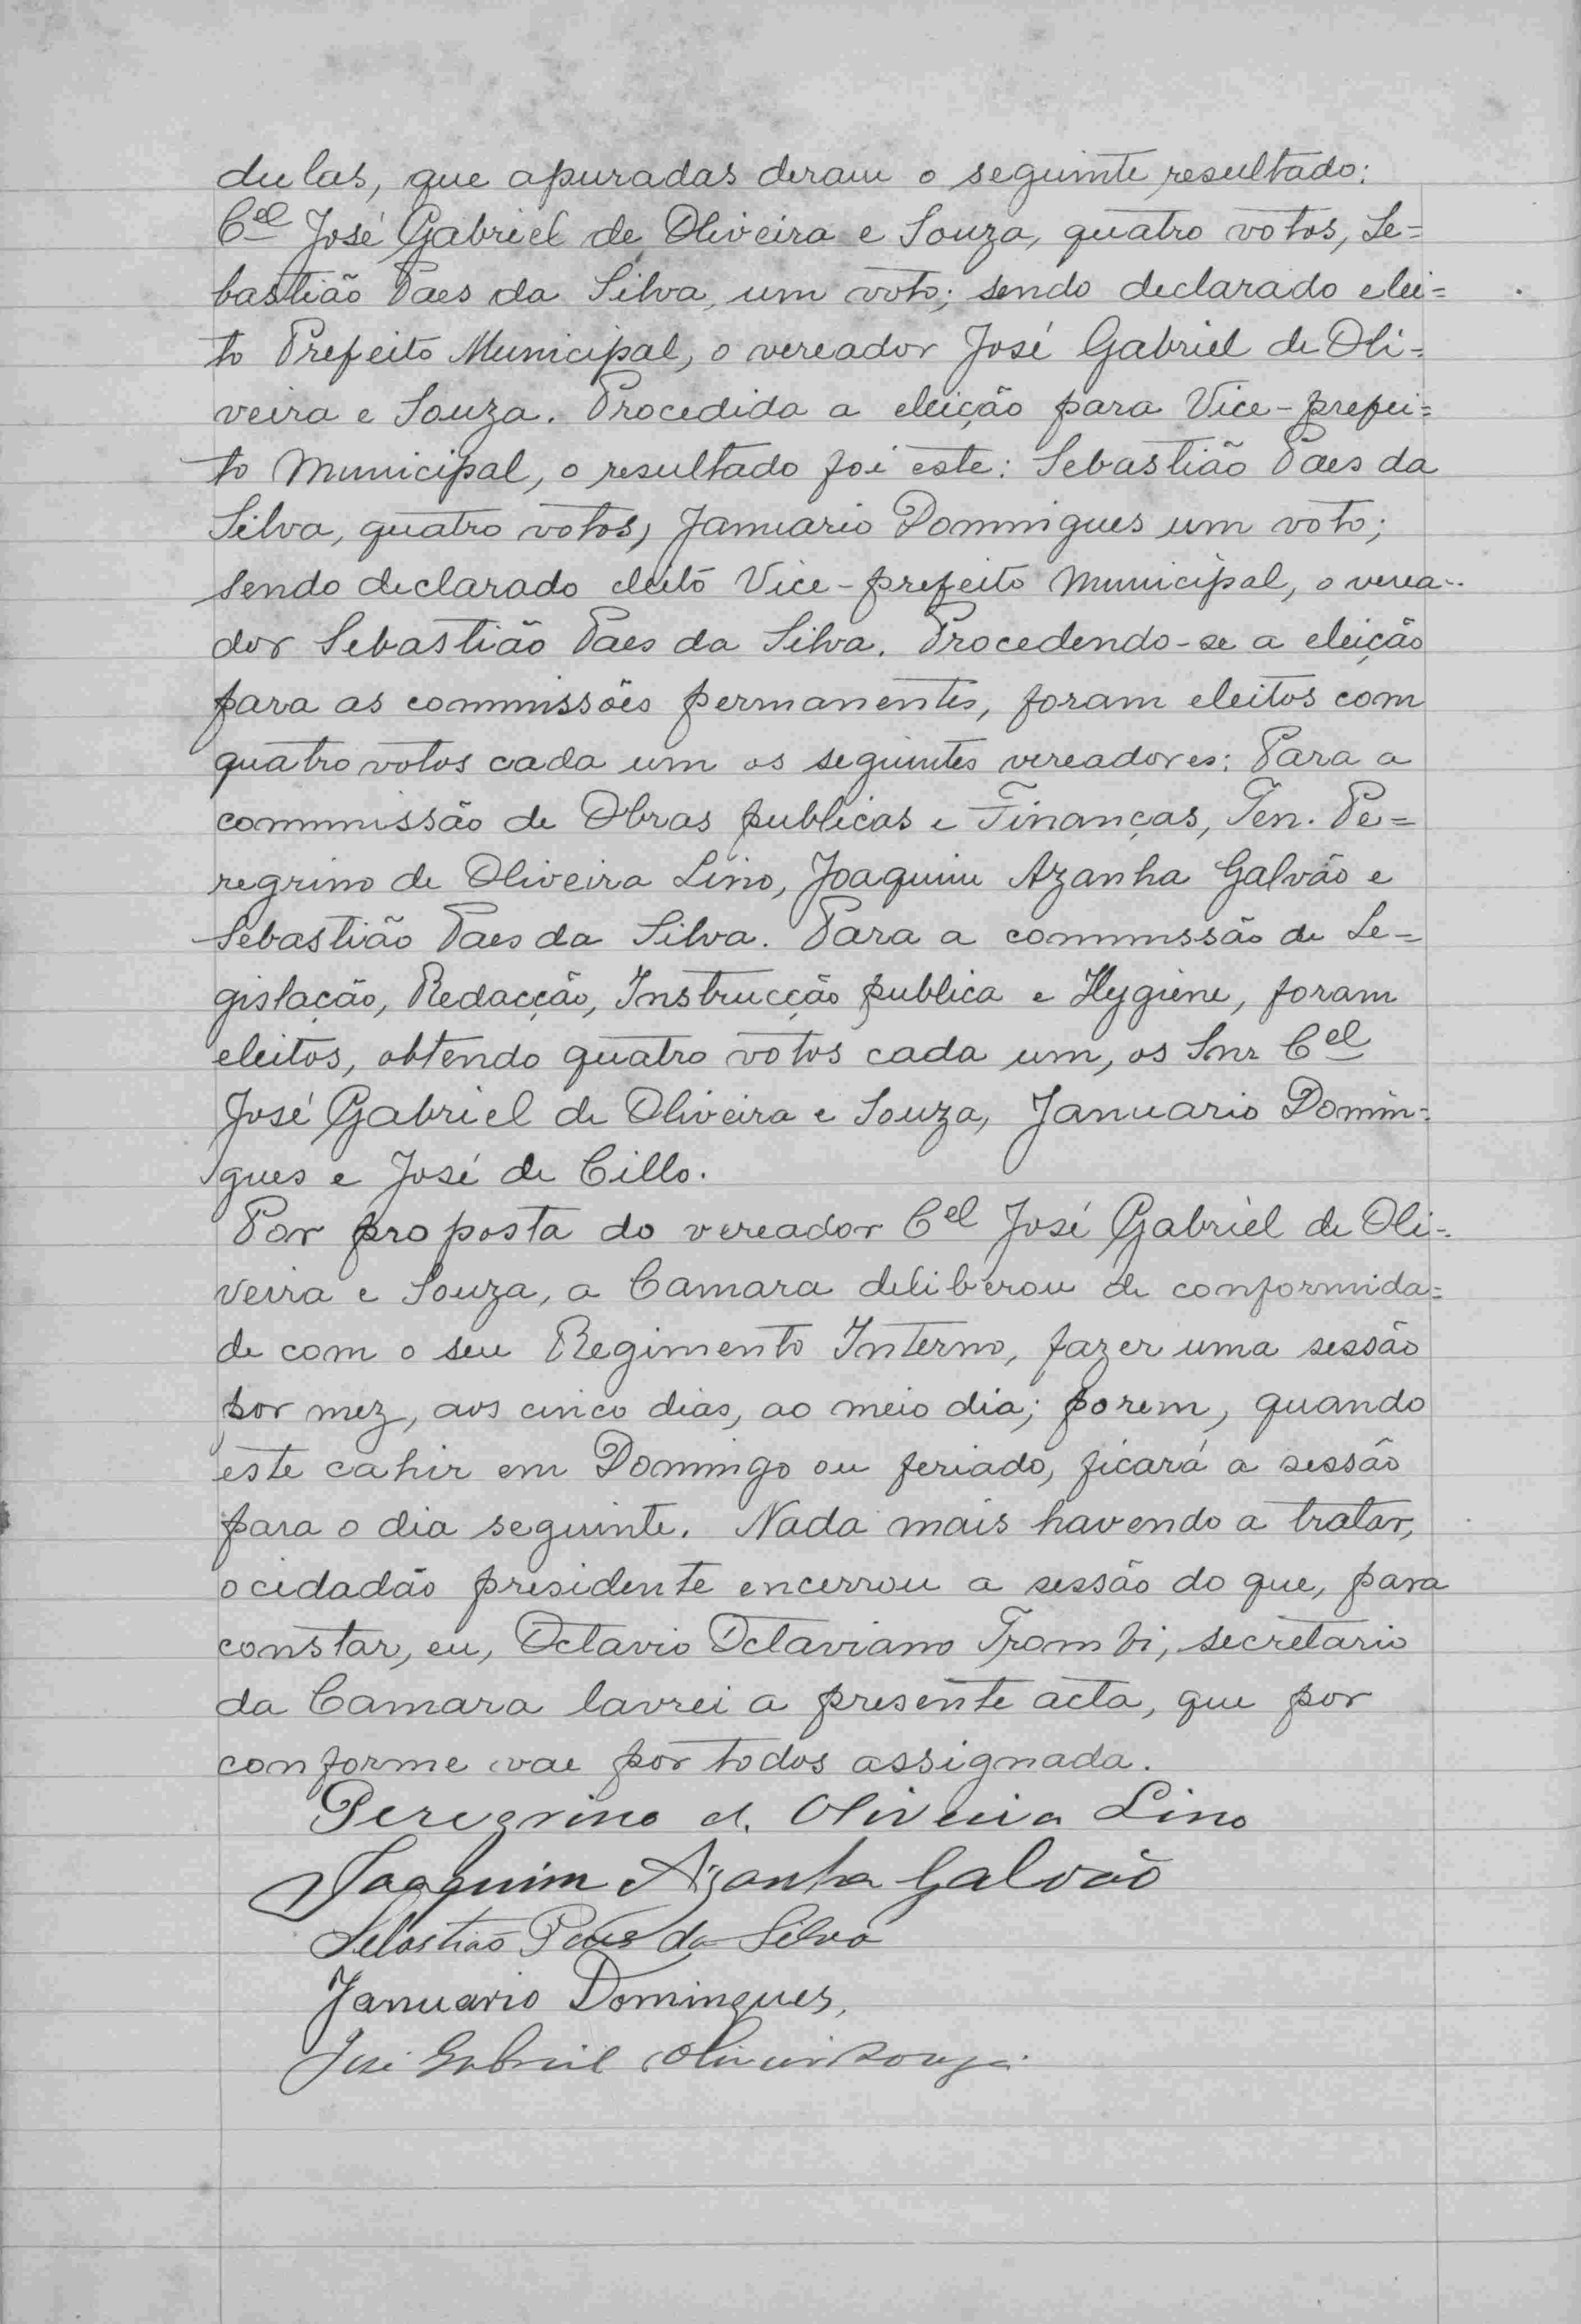 dulas, que apuradas deram o seguinte resultado:
Cel José Gabriel de Oliveira e Souza, quatro votos, Se=
bastião Paes da Silva, um voto; sendo declarado elei=
to Prefeito Municipal, o vereador José Gabriel de Oli=
veira e Souza. Procedida a eleição para Vice-prefei=
to Municipal, o resultado foi este: Sebastião Paes da
Silva, quatro votos, Januario Domingues um voto;
sendo declarado eleito Vice-prefeito Municipal, o verea-
dor Sebastião Paes da Silva. Procedendo-se a eleição
para as commissões permanentes, foram eleitos com
quatro votos cada um os seguintes vereadores: Para a
commissão de Obras publicas e Finanças, Ten. Pe=
regrino de Oliveira Lino, Joaquim Azanha Galvão e
Sebastião Paes da Silva. Para a commissão de Le=
gislação, Redacção, Instrucção publica e Hygiene, foram
eleitos, obtendo quatro votos cada um, os Snr Cel
José Gabriel de Oliveira e Souza, Januario Domin=
gues e José de Cillo.
Por proposta do vereador Cel José Gabriel de Oli=
veira e Souza, a Camara deliberou de conformida=
de com o seu Regimento Interno, fazer uma sessão
por mez, aos cinco dias, ao meio dia; porem, quando
este cahir em Domingo ou feriado, ficará a sessão
para o dia seguinte. Nada mais havendo a tratar,
o cidadão presidente encerrou a sessão do que, para
constar, eu, Octavio Octaviano Trombi, secretario
da Camara lavrei a presente acta, que por
conforme vae por todos assignada.
Peregrino d. Oliveira Lino
Joaquim Azanha Galvão
Sebastião Paes da Silva
Januario Domingues,
José Gabriel Oliveira Souza